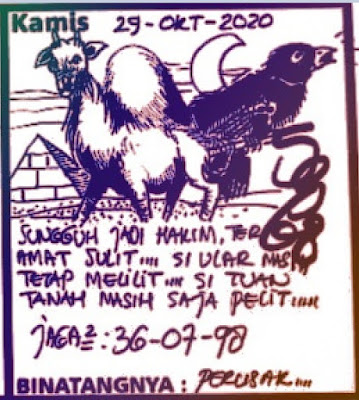 Kamis 29-OKT-2020
SUNGGUH JADI HAKIM, TER
AMAT SULIT.... SI ULAR MAS
TETAP MELILIT.... SI TUAN
TANAH MASIH SAJA PELIT.....
JAGA²=: 36-07-98
BINATANGNYA : PERUSAK....